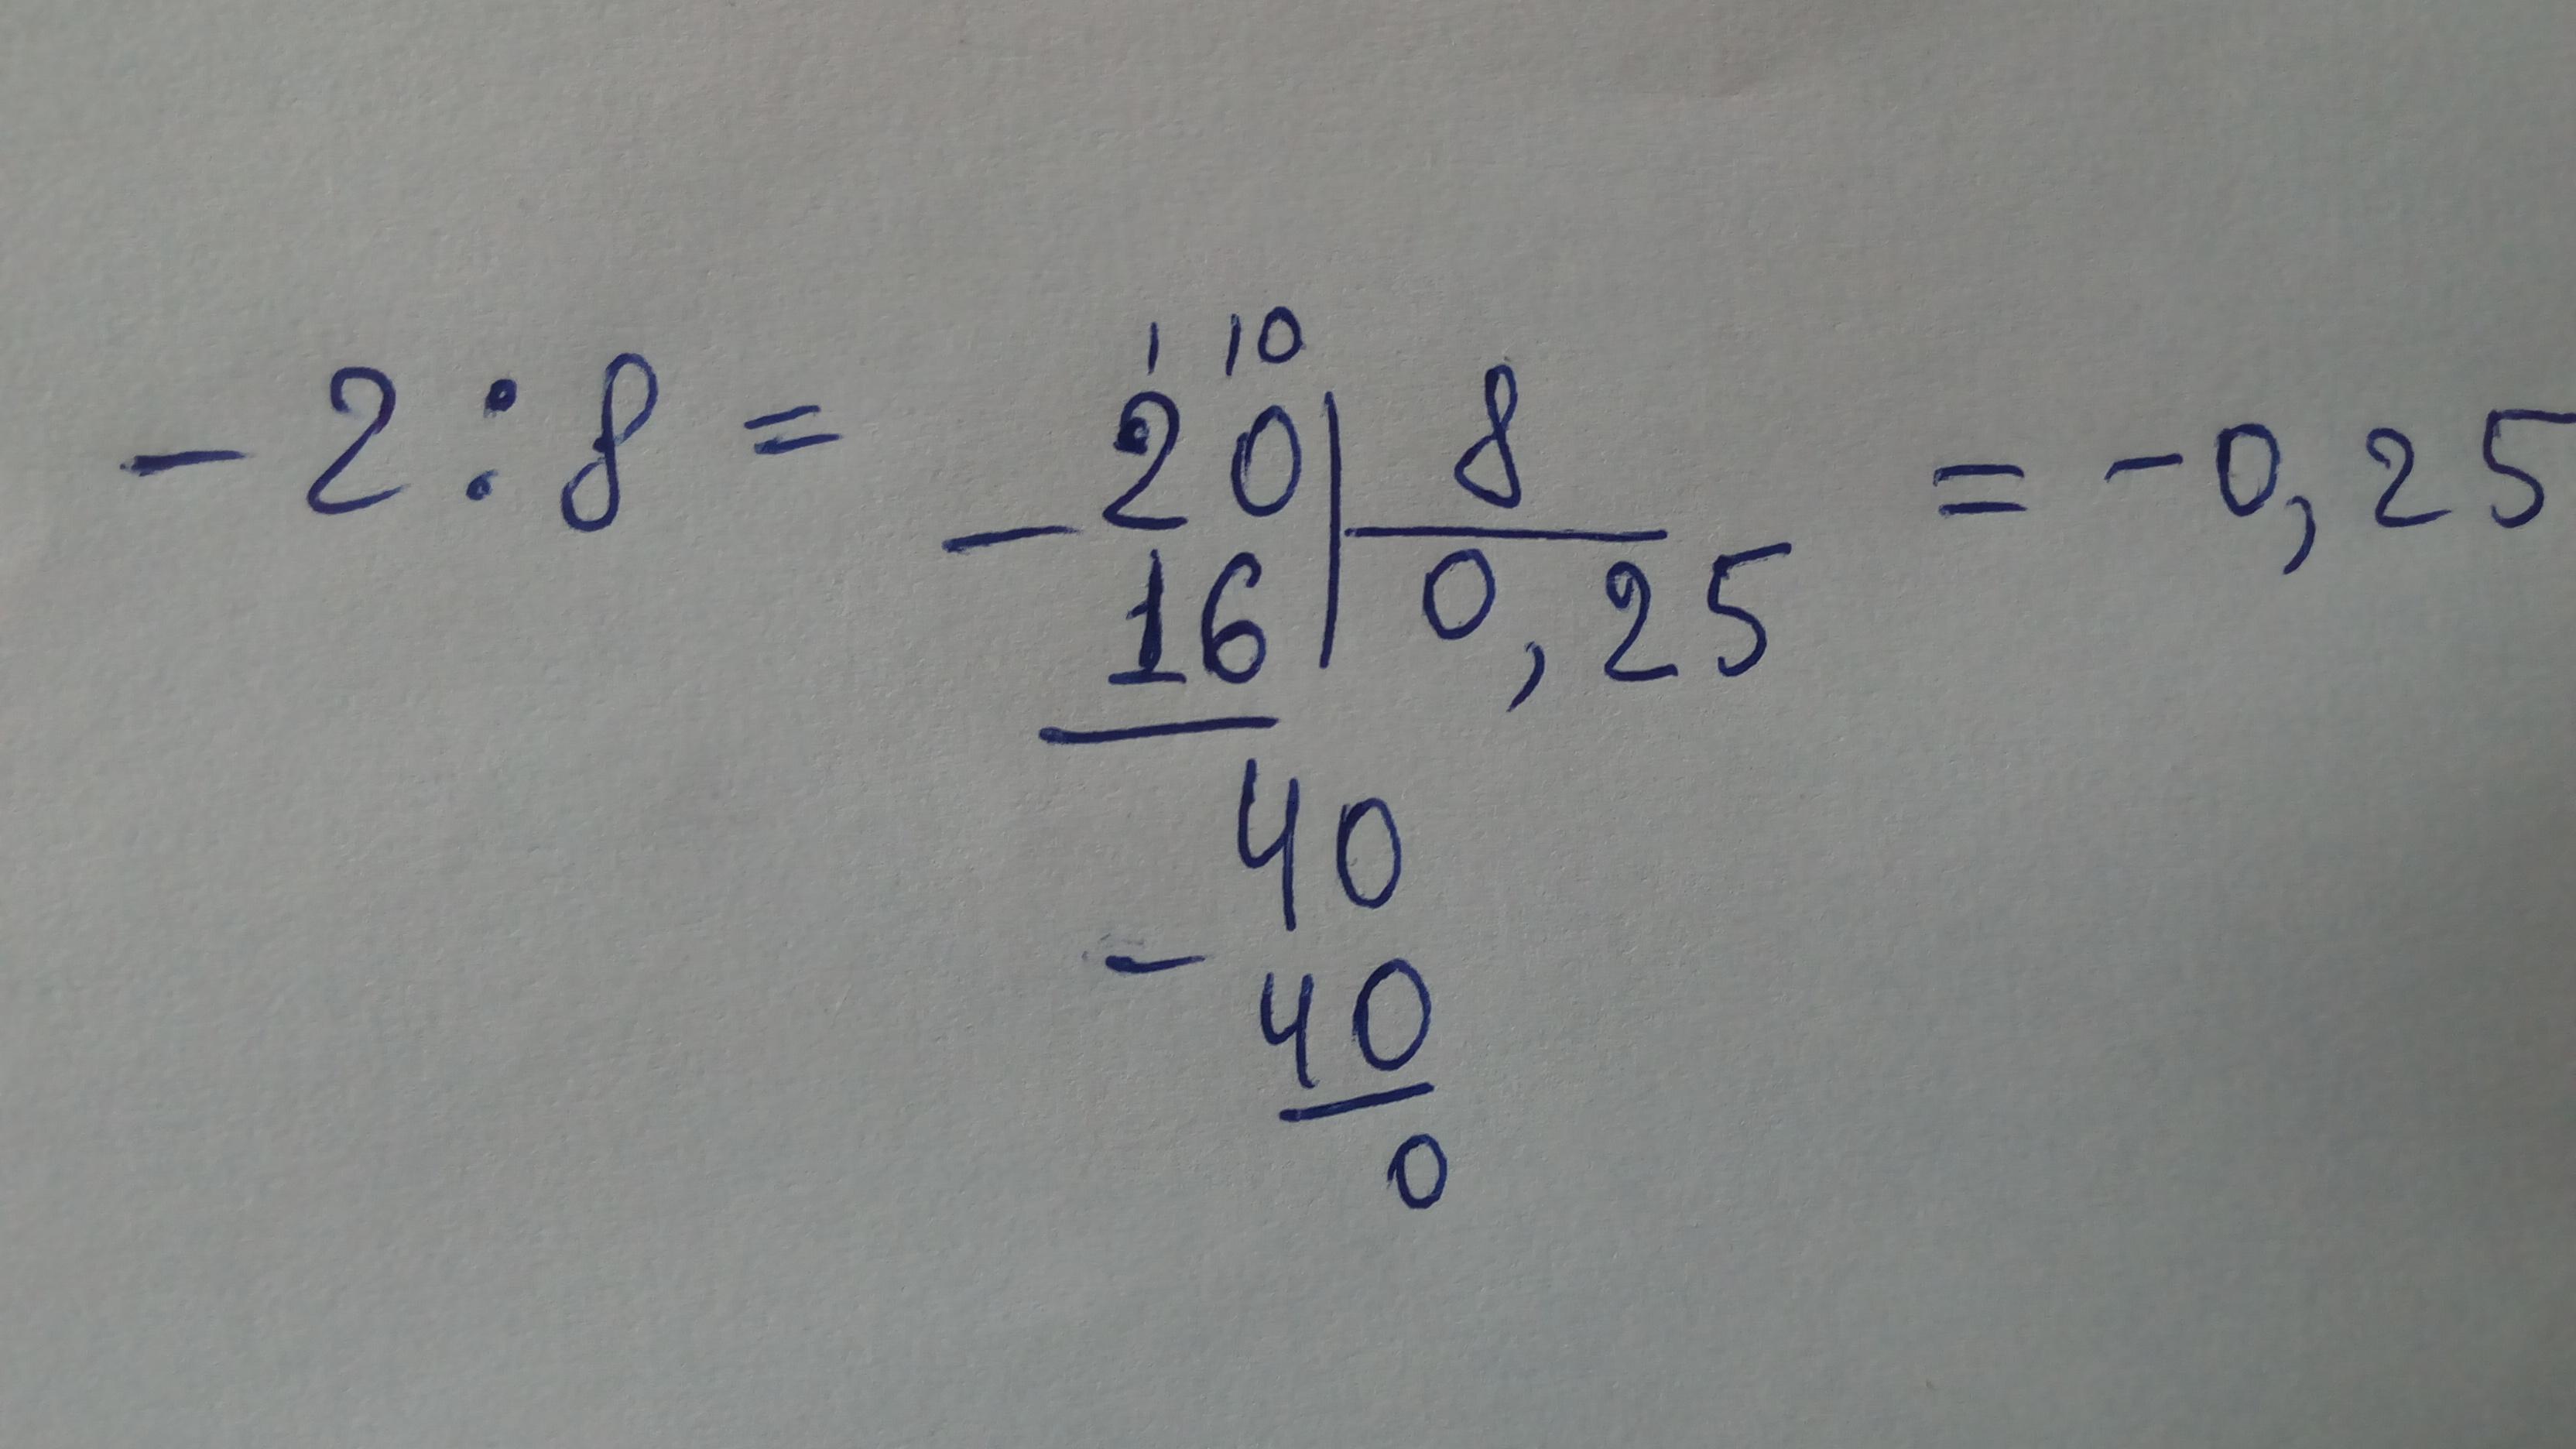 1 10
- 2 : 8 = - 20 | 8 = - 0,25
16 | 0,25
40
- 40
0